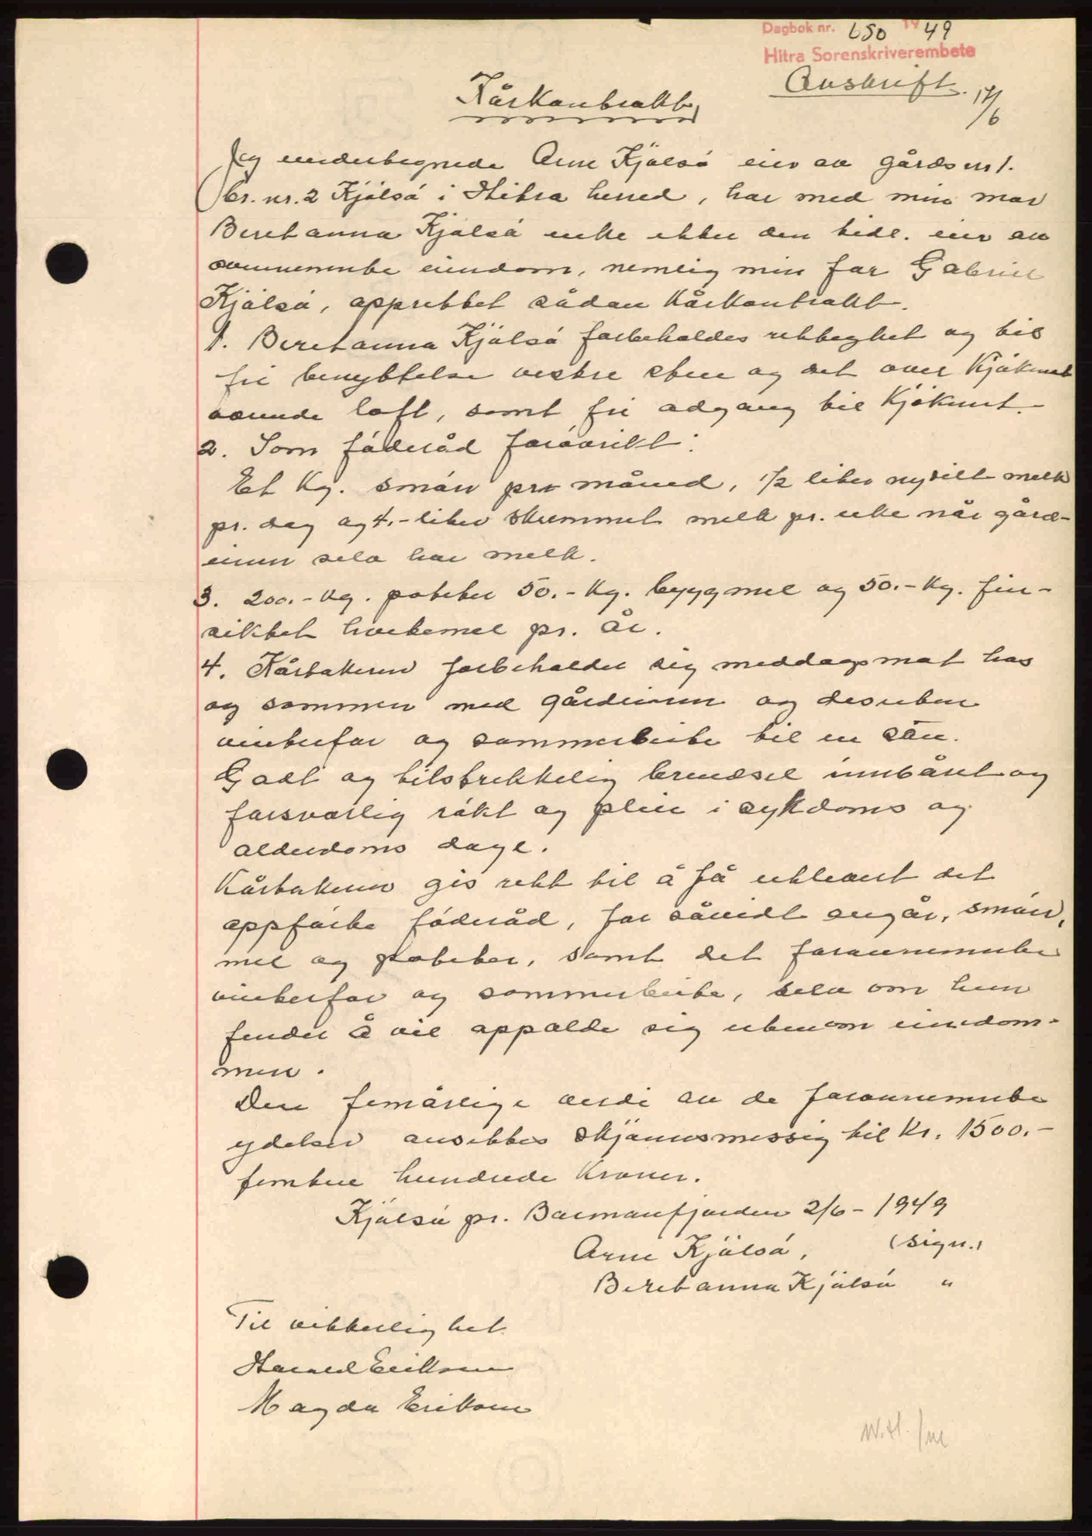 Dagbok nr. 650 1949
Hitra Sorenskriverembete
Avskrift. 17/6
Kårkontrakt
Jeg undertegnede Arne Kjölsö eier av gårdsnr 1.
br. nr. 2 Kjölsö i Hitra herred, har med min mor
Beret anna Kjölsö enke etter den tidl. eier av
samme eiendom, nemlig min far Gabriel
Kjölsö, opprettet sådan kårkontrakt.
1. Beret anna Kjölsö forbeholdes rettighet og til
fri benyttelse vestre stue og det over Kjökenet
værende loft, samt fri adgang til Kjökenet.-
2. Som föderåd forövrikt:
Et kg. smör pr måned, 1/2 liter nysilt melk
pr. dag og 4.- liter skummet melk pr. uke når gård-
eieren selv har melk.
3. 200.- kg. poteter 50.- kg. byggmel og 50.- kg. fin-
siktet hvetemel pr. år.
4. Kårtakeren forbeholder sig middagsmat hos
og sammen med gårdeieren og desuten
vinterfor og sommerbeite til en sau.
Godt og tilstrekkelig brendsel innbåret og
forsvarlig rökt og pleie i sykdoms og
alderdoms dage.
Kårtakeren gis rett til å få utlevert det
oppförte föderåd, for såvidt angår, smör,
mel og poteter, samt det forannevnte
vinterfor og sommerbeite, selv om hun
finder å vil oppolde sig utenom eiendom-
men.
Den femårlige verdi av de forannevnte
ydelser ansettes skjönnsmessig til kr. 1500.-
femten hundrede kroner.
Kjölsö pr. Barmanfjorden 2/6 - 1949
Arne Kjölsö, (sign.)
Beret anna Kjölsö "
Til vitterlighet
Harald Eriksen
Magda Eriksen